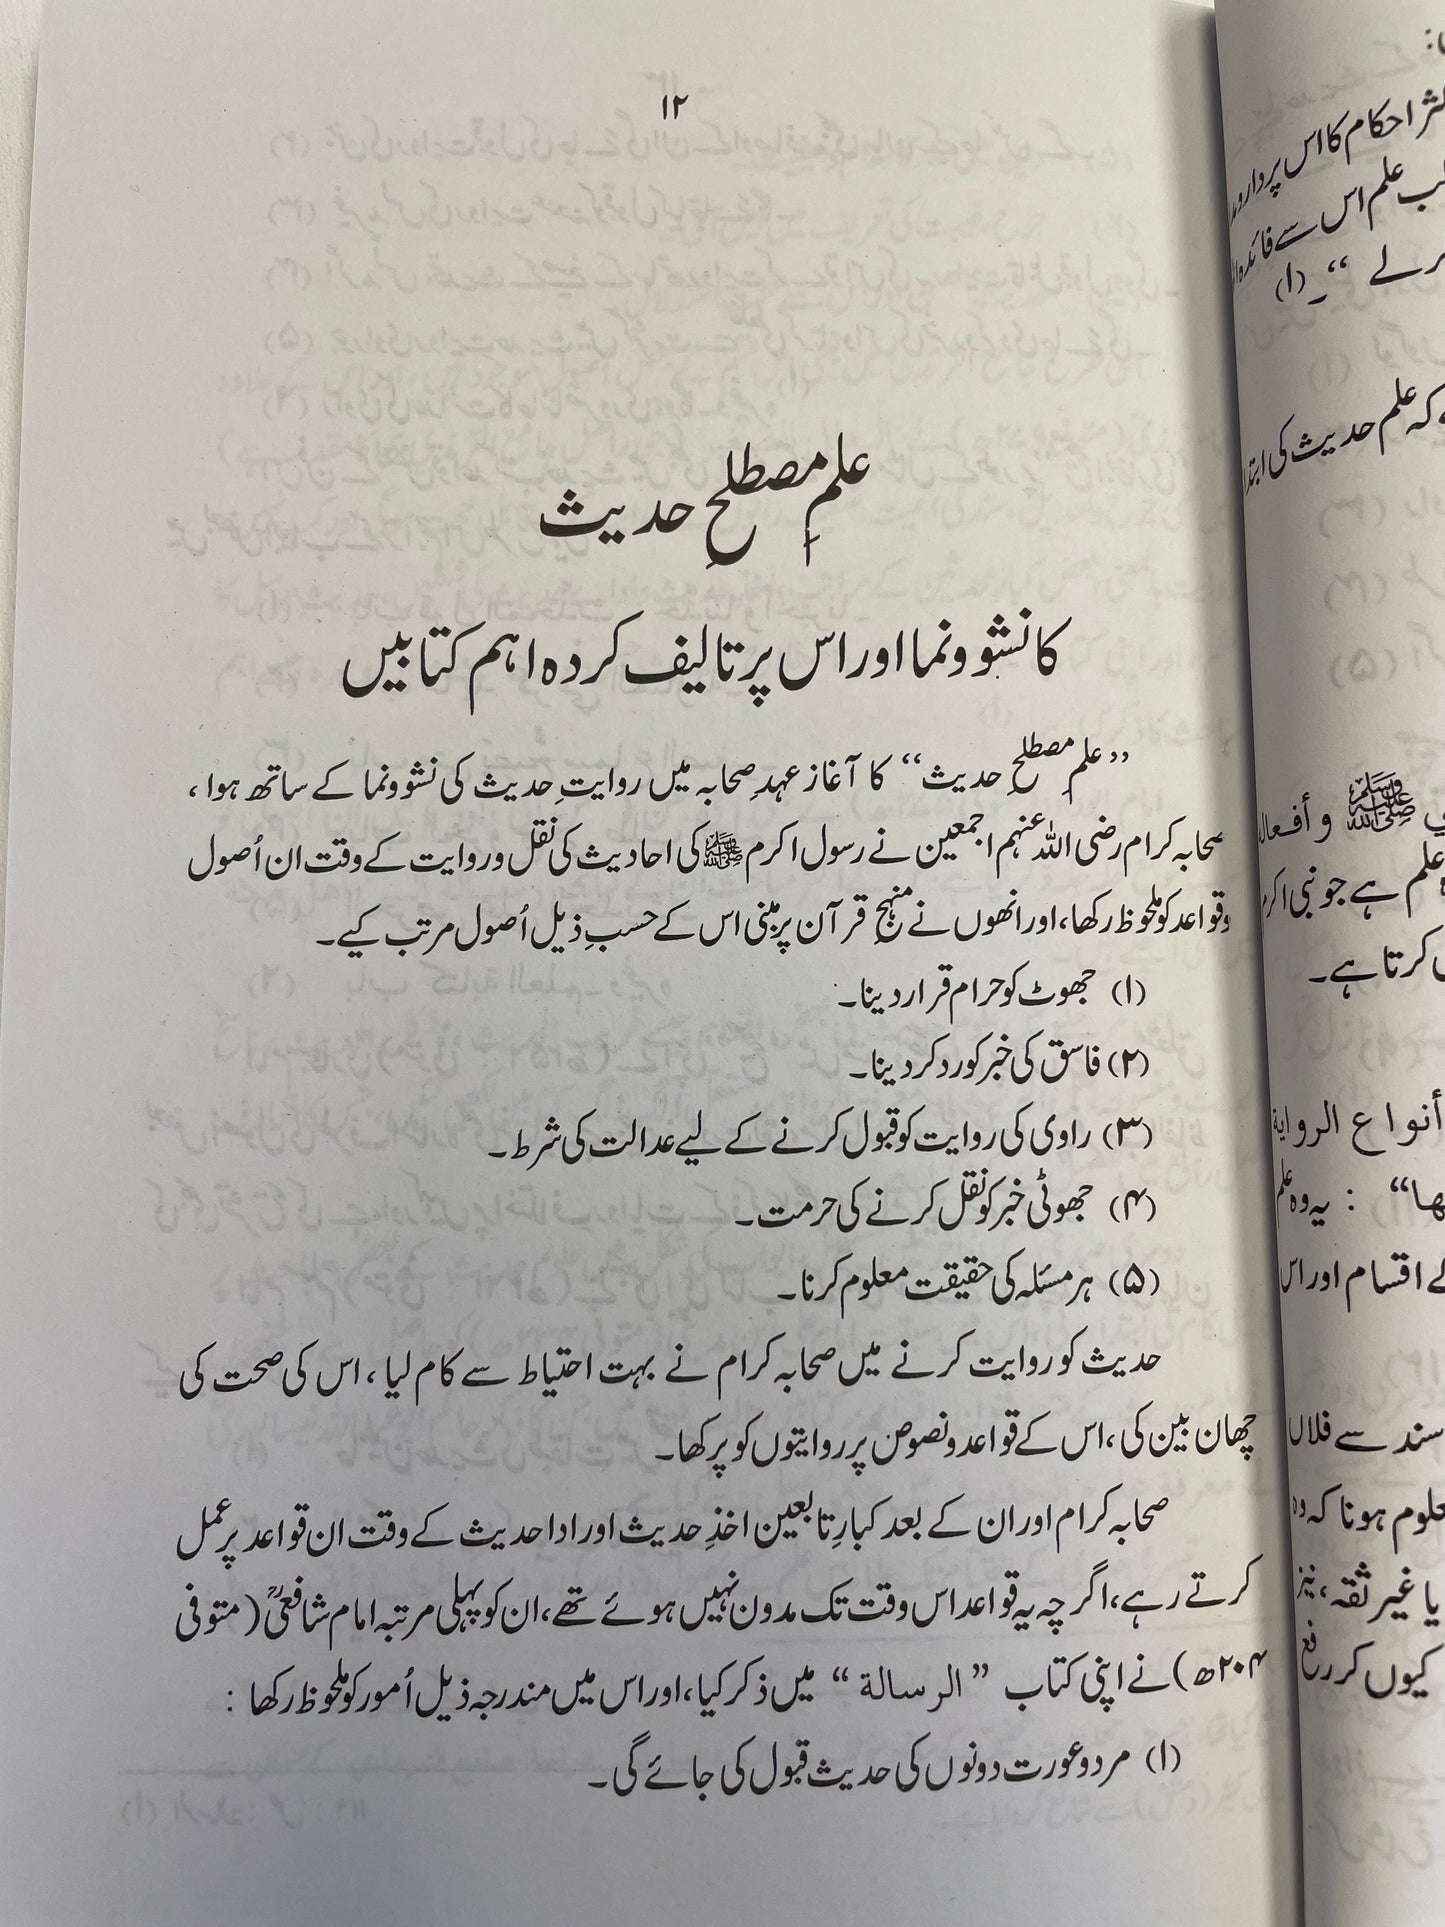 ۱۲
علمِ مصطلحِ حدیث
کا نشوونما اور اس پر تالیف کردہ اہم کتابیں
’’علمِ مصطلحِ حدیث‘‘ کا آغاز عہدِ صحابہ میں روایتِ حدیث کی نشوونما کے ساتھ ہوا،
صحابہ کرام رضی اللہ عنہم اجمعین نے رسول اکرم ﷺ کی احادیث کی نقل و روایت کے وقت ان اُصول
وقواعد کو ملحوظ رکھا، اور انھوں نے منہجِ قرآن پر مبنی اس کے حسبِ ذیل اُصول مرتب کیے۔
(۱) جھوٹ کو حرام قرار دینا۔
(۲) فاسق کی خبر کو رد کر دینا۔
(۳) راوی کی روایت کو قبول کرنے کے لیے عدالت کی شرط۔
(۴) جھوٹی خبر کو نقل کرنے کی حرمت۔
(۵) ہر مسئلہ کی حقیقت معلوم کرنا۔
حدیث کو روایت کرنے میں صحابہ کرام نے بہت احتیاط سے کام لیا، اس کی صحت کی
چھان بین کی، اس کے قواعد و نصوص پر روایتوں کو پرکھا۔
صحابہ کرام اور ان کے بعد کبارِ تابعین اخذِ حدیث اور ادا حدیث کے وقت ان قواعد پر عمل
کرتے رہے، اگرچہ یہ قواعد اس وقت تک مدون نہیں ہوئے تھے، ان کو پہلی مرتبہ امام شافعیؒ (متوفی
۲۰۴ھ) نے اپنی کتاب ”الرسالة“ میں ذکر کیا، اور اس میں مندرجہ ذیل اُمور کو ملحوظ رکھا :
(۱) مرد و عورت دونوں کی حدیث قبول کی جائے گی۔
احکام کا اس پر
علم اس سے
لے‘‘۔(۱)
کہ علم حدیث کی
ﷺ و أفعاله
علم ہے جو نبی
کرتا ہے۔
أنواع الرواية
: یہ وہ علم
کے اقسام اور اس
سند سے فلاں
معلوم ہونا کہ وہ
یا غیر ثقہ، نیز
کیوں کر رفع